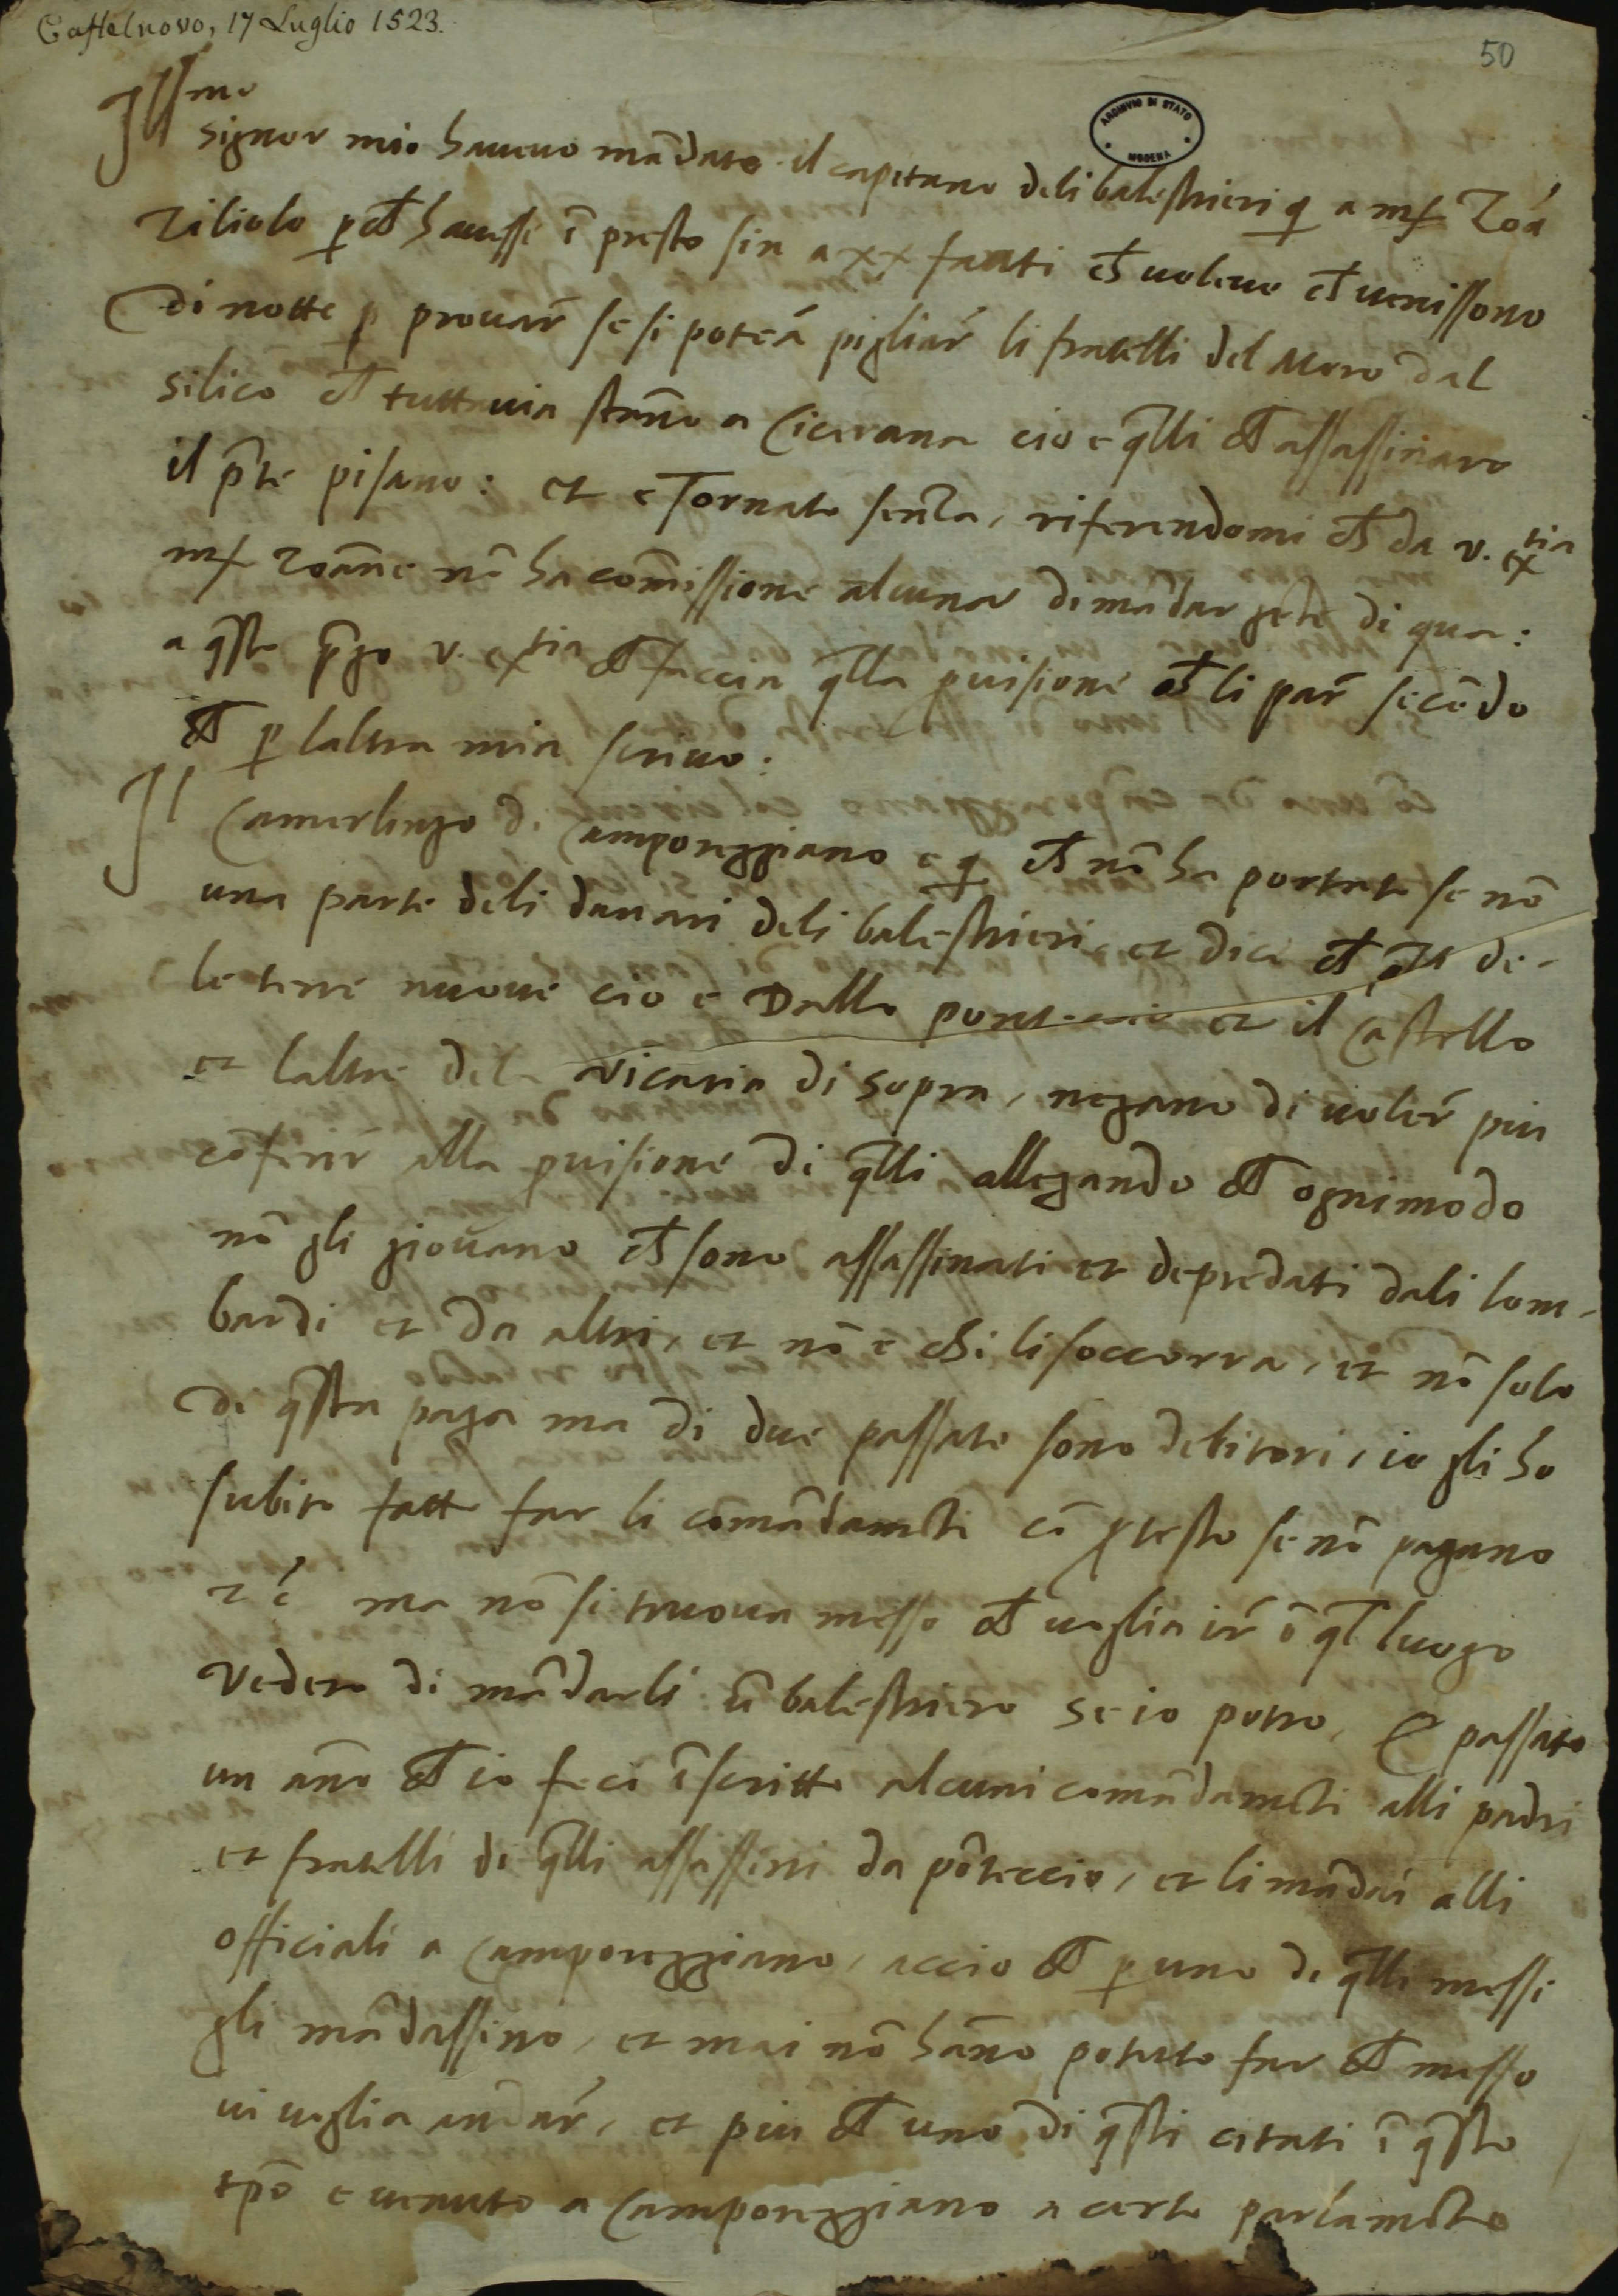 Castelnovo, 17 Luglio 1523.
50
Ill^mo
ARCHIVIO DI STATO
MODENA
signor mio haveuo mãdato il capitano deli balestrieri q̃ a ms Zoã
Ziliolo p ch̃ hauessi ĩ presto sin a xx fanti ch̃ uoleuo ch̃ uenissono
di notte p prouar̃ se si poteã pigliar̃ li fratelli del Moro dal
silico ch̃ tuttauia stãno a Cicerana cio e q̃lli ch̃ assassinaro
il p̃te pisano: et e tornato senza, riferendomi ch̃ da v. ex^tia
ms Zoãne nõ ha cõmissione alcuna di mãdar gẽte di qua:
a q̃sto p̃go v. ex^tia ch̃ faccia q̃lla puisione ch̃ li par̃ secõdo
ch̃ p laltra mia scriuo:
Il
Camerlingo di Camporeggiano e q̃ ch̃ nõ ha portato se nõ
una parte deli danari deli balestrieri, et dice ch̃ q̃lli de-
le terre nuoue cio e Dalli ponteccio et il Castello
et laltre dela vicaria di sopra, negano di uoler̃ piu
cõferir̃ alla puisione di q̃lli allegando ch̃ ognimodo
nõ gli giouano ch̃ sono assassinati et depredati dali lom-
bardi et da altri, et nõ e chi li soccorra, et nõ solo
di q̃sta paga ma di due passate sono debitori, io gli ho
subito fatto far li comãdamẽti cõ ptesto se nõ pagano
zc̃ ma nõ si truoua messo ch̃ uoglia ir̃ ĩ q̃l luogo
Vedero di mãdarli ũ balestriero se io potro, E passato
un ãno ch̃ io feci ĩscritto alcuni comãdamẽti alli padri
et fratelli di q̃lli assassini da põteccio, et li mãdai alli
officiali a Camporeggiano, accio ch̃ p uno di q̃lli messi
gli mãdassino, et mai nõ hãno potuto far ch̃ messo
ui uoglia andar̃, et piu ch̃ uno di q̃sti citati ĩ q̃sto
tpõ e uenuto a Camporeggiano a certo parlamẽto